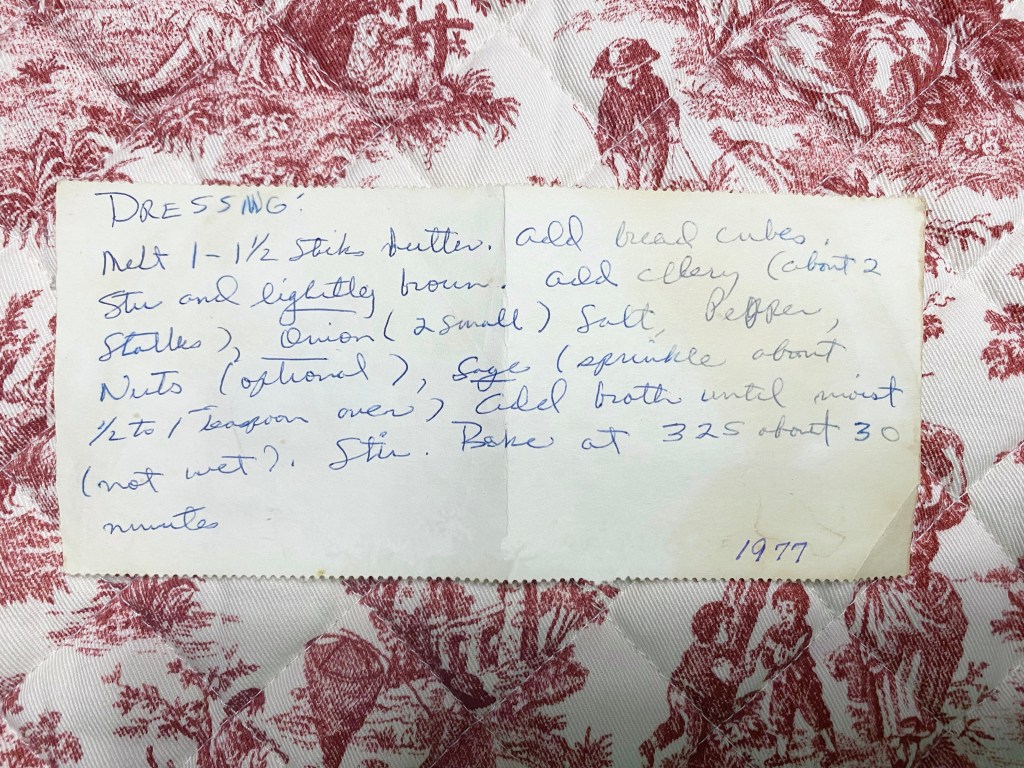 DRESSING:
Melt 1-1½ Stiks butter. add bread cubes.
Stir and lightly brown. add celery (about 2
Stalks), Onion (2 small) Salt, Pepper,
Nuts (optional), Sage (sprinkle about
½ to 1 Teaspoon over) add broth until moist
(not wet). Stir. Bake at 325 about 30
minutes
1977